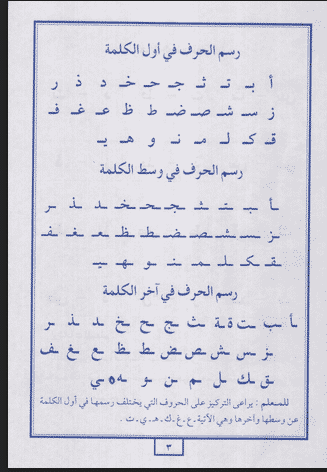 رسم الحرف في أول الكلمة
أ بـ تـ ثـ جـ حـ خـ د ذ ر
ز سـ شـ صـ ضـ ط ظ عـ غـ فـ
قـ كـ لـ مـ نـ و هـ يـ
رسم الحرف في وسط الكلمة
ـأ ـبـ ـتـ ـثـ ـجـ ـحـ ـخـ ـد ـذ ـر
ـز ـسـ ـشـ ـصـ ـضـ ـطـ ـظـ ـعـ ـغـ ـفـ
ـقـ ـكـ ـلـ ـمـ ـنـ ـو ـهـ ـيـ
رسم الحرف في آخر الكلمة
ـأ ـب ـت ة ـة ـث ـج ـح ـخ ـد ـذ ـر
ـز ـس ـش ـص ـض ـط ـظ ـع ـغ ـف
ـق ـك ـل ـم ـن ـو ـه ه ـي
للمعلم : يراعى التركيز على الحروف التي يختلف رسمها في أول الكلمة
عن وسطها وآخرها وهي الآتية ـ ع ـ غ ـ ك ـ هـ ـ ي ـ ت .
٣